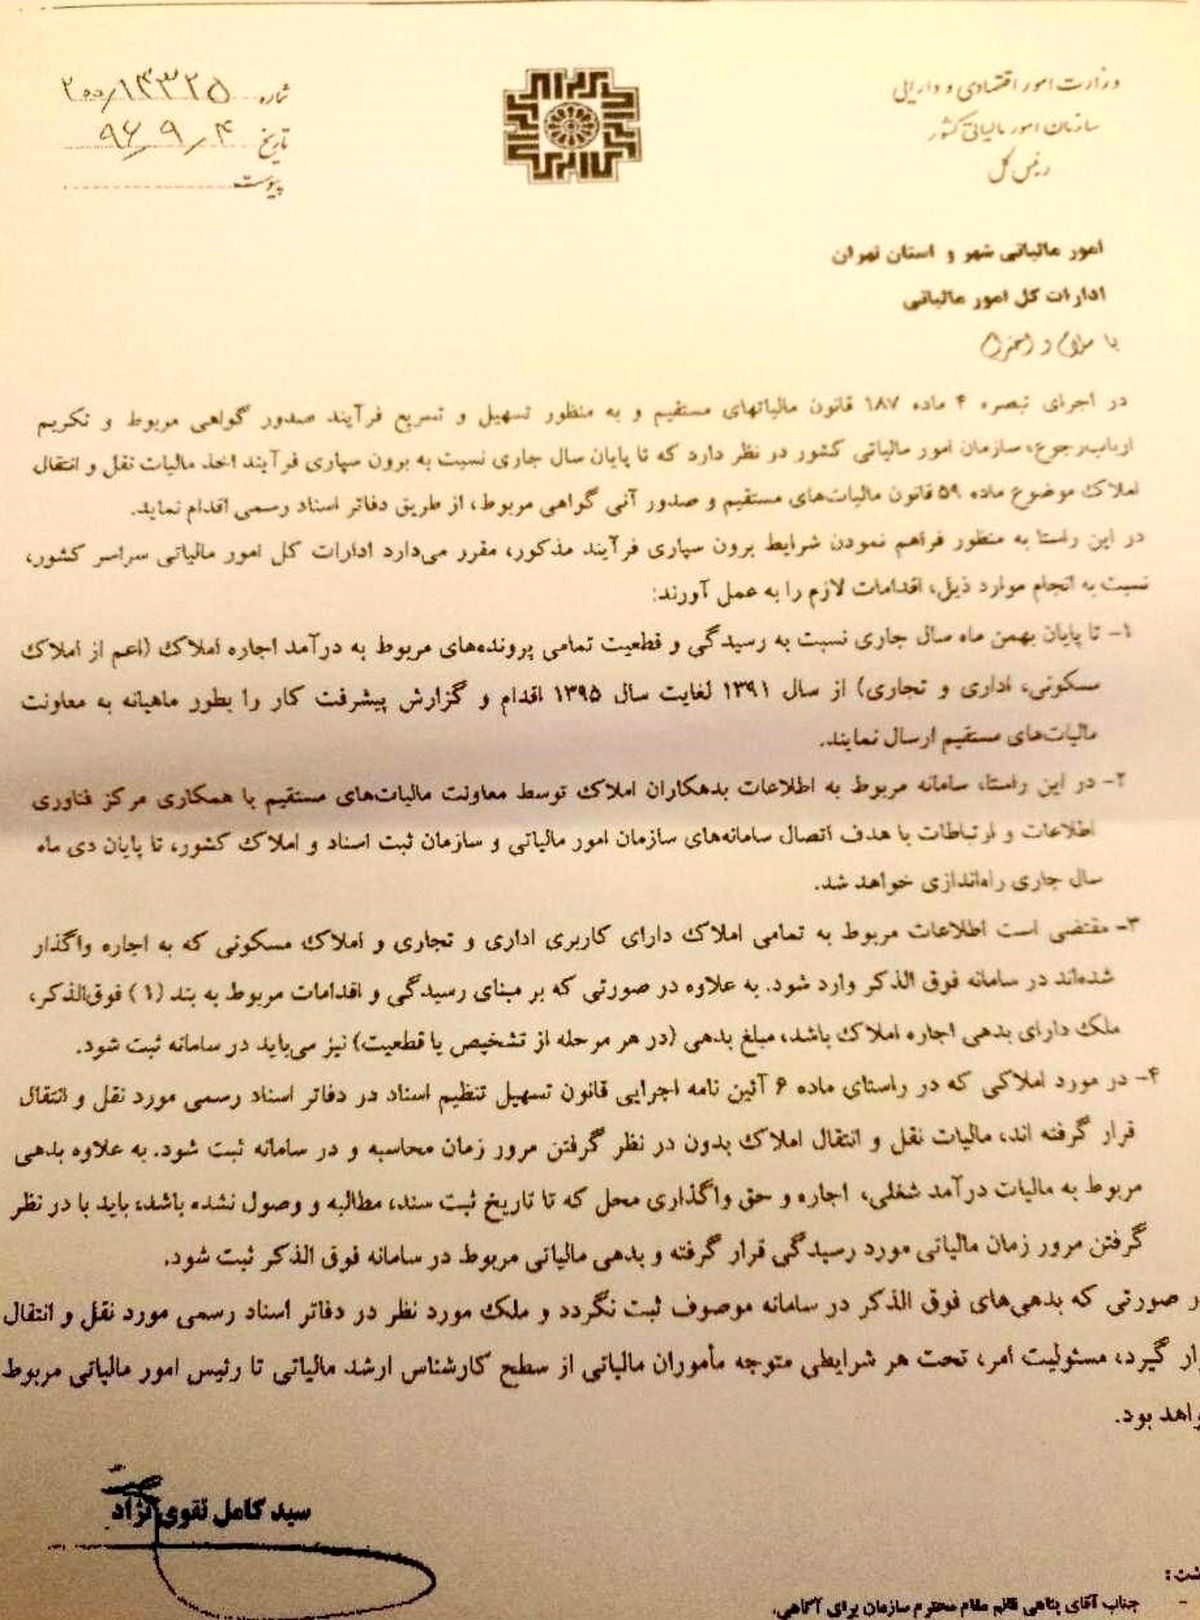 وزارت امور اقتصادی و دارایی
سازمان امور مالیاتی کشور
رئیس کل
شماره ۲۰۰/۱۴۳۲۵
تاریخ ۹۶/۹/۴
پیوست
امور مالیاتی شهر و استان تهران
ادارات کل امور مالیاتی
با سلام و احترام
در اجرای تبصره ۴ ماده ۱۸۷ قانون مالیاتهای مستقیم و به منظور تسهیل و تسریع فرآیند صدور گواهی مربوط و تکریم
ارباب‌رجوع، سازمان امور مالیاتی کشور در نظر دارد که تا پایان سال جاری نسبت به برون سپاری فرآیند اخذ مالیات نقل و انتقال
املاک موضوع ماده ۵۹ قانون مالیات‌های مستقیم و صدور آنی گواهی مربوط، از طریق دفاتر اسناد رسمی اقدام نماید.
در این راستا به منظور فراهم نمودن شرایط برون سپاری فرآیند مذکور، مقرر می‌دارد ادارات کل امور مالیاتی سراسر کشور،
نسبت به انجام موارد ذیل، اقدامات لازم را به عمل آورند:
۱- تا پایان بهمن ماه سال جاری نسبت به رسیدگی و قطعیت تمامی پرونده‌های مربوط به درآمد اجاره املاک (اعم از املاک
مسکونی، اداری و تجاری) از سال ۱۳۹۱ لغایت سال ۱۳۹۵ اقدام و گزارش پیشرفت کار را بطور ماهیانه به معاونت
مالیات‌های مستقیم ارسال نمایند.
۲- در این راستا، سامانه مربوط به اطلاعات بدهکاران املاک توسط معاونت مالیات‌های مستقیم با همکاری مرکز فناوری
اطلاعات و ارتباطات با هدف اتصال سامانه‌های سازمان امور مالیاتی و سازمان ثبت اسناد و املاک کشور، تا پایان دی ماه
سال جاری راه‌اندازی خواهد شد.
۳- مقتضی است اطلاعات مربوط به تمامی املاک دارای کاربری اداری و تجاری و املاک مسکونی که به اجاره واگذار
شده‌اند در سامانه فوق الذکر وارد شود. به علاوه در صورتی که بر مبنای رسیدگی و اقدامات مربوط به بند (۱) فوق‌الذکر،
ملک دارای بدهی اجاره املاک باشد، مبلغ بدهی (در هر مرحله از تشخیص یا قطعیت) نیز می‌باید در سامانه ثبت شود.
۴- در مورد املاکی که در راستای ماده ۶ آئین نامه اجرایی قانون تسهیل تنظیم اسناد در دفاتر اسناد رسمی مورد نقل و انتقال
قرار گرفته اند، مالیات نقل و انتقال املاک بدون در نظر گرفتن مرور زمان محاسبه و در سامانه ثبت شود. به علاوه بدهی
مربوط به مالیات درآمد شغلی، اجاره و حق واگذاری محل که تا تاریخ ثبت سند، مطالبه و وصول نشده باشد، باید با در نظر
گرفتن مرور زمان مالیاتی مورد رسیدگی قرار گرفته و بدهی مالیاتی مربوط در سامانه فوق الذکر ثبت شود.
ر صورتی که بدهی‌های فوق الذکر در سامانه موصوف ثبت نگردد و ملک مورد نظر در دفاتر اسناد رسمی مورد نقل و انتقال
رار گیرد، مسئولیت امر، تحت هر شرایطی متوجه مأموران مالیاتی از سطح کارشناس ارشد مالیاتی تا رئیس امور مالیاتی مربوط
واهد بود.
سید کامل تقوی نژاد
شت:
- جناب آقای پناهی قائم مقام محترم سازمان برای آگاهی.